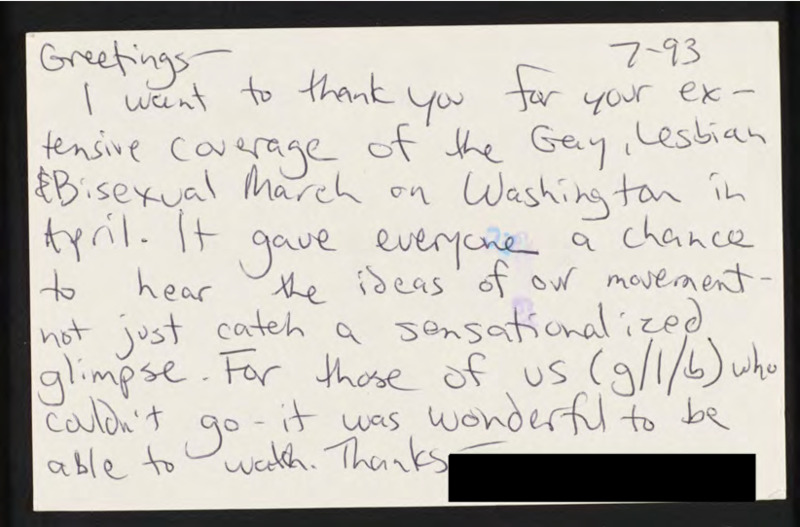 Greetings—
7-93
I want to thank you for your ex-
tensive coverage of the Gay, Lesbian
&Bisexual March on Washington in
April. It gave everyone a chance
to hear the ideas of our movement-
not just catch a sensationalized
glimpse. For those of us (g/l/b) who
couldn't go - it was wonderful to be
able to watch. Thanks—